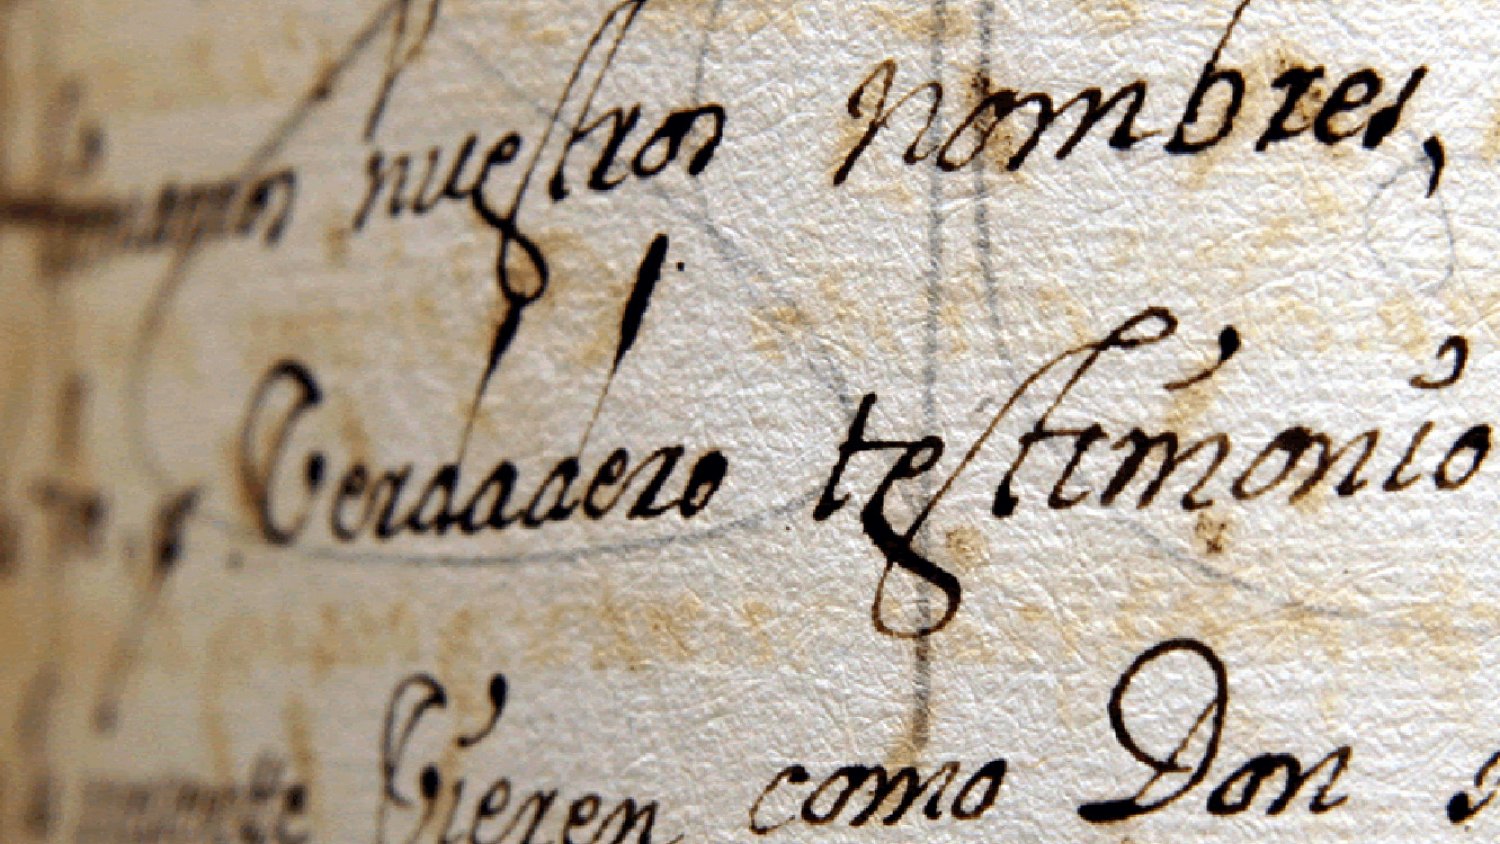 nuestros nombres,
y Verdadero testimonio
Vieren como Don